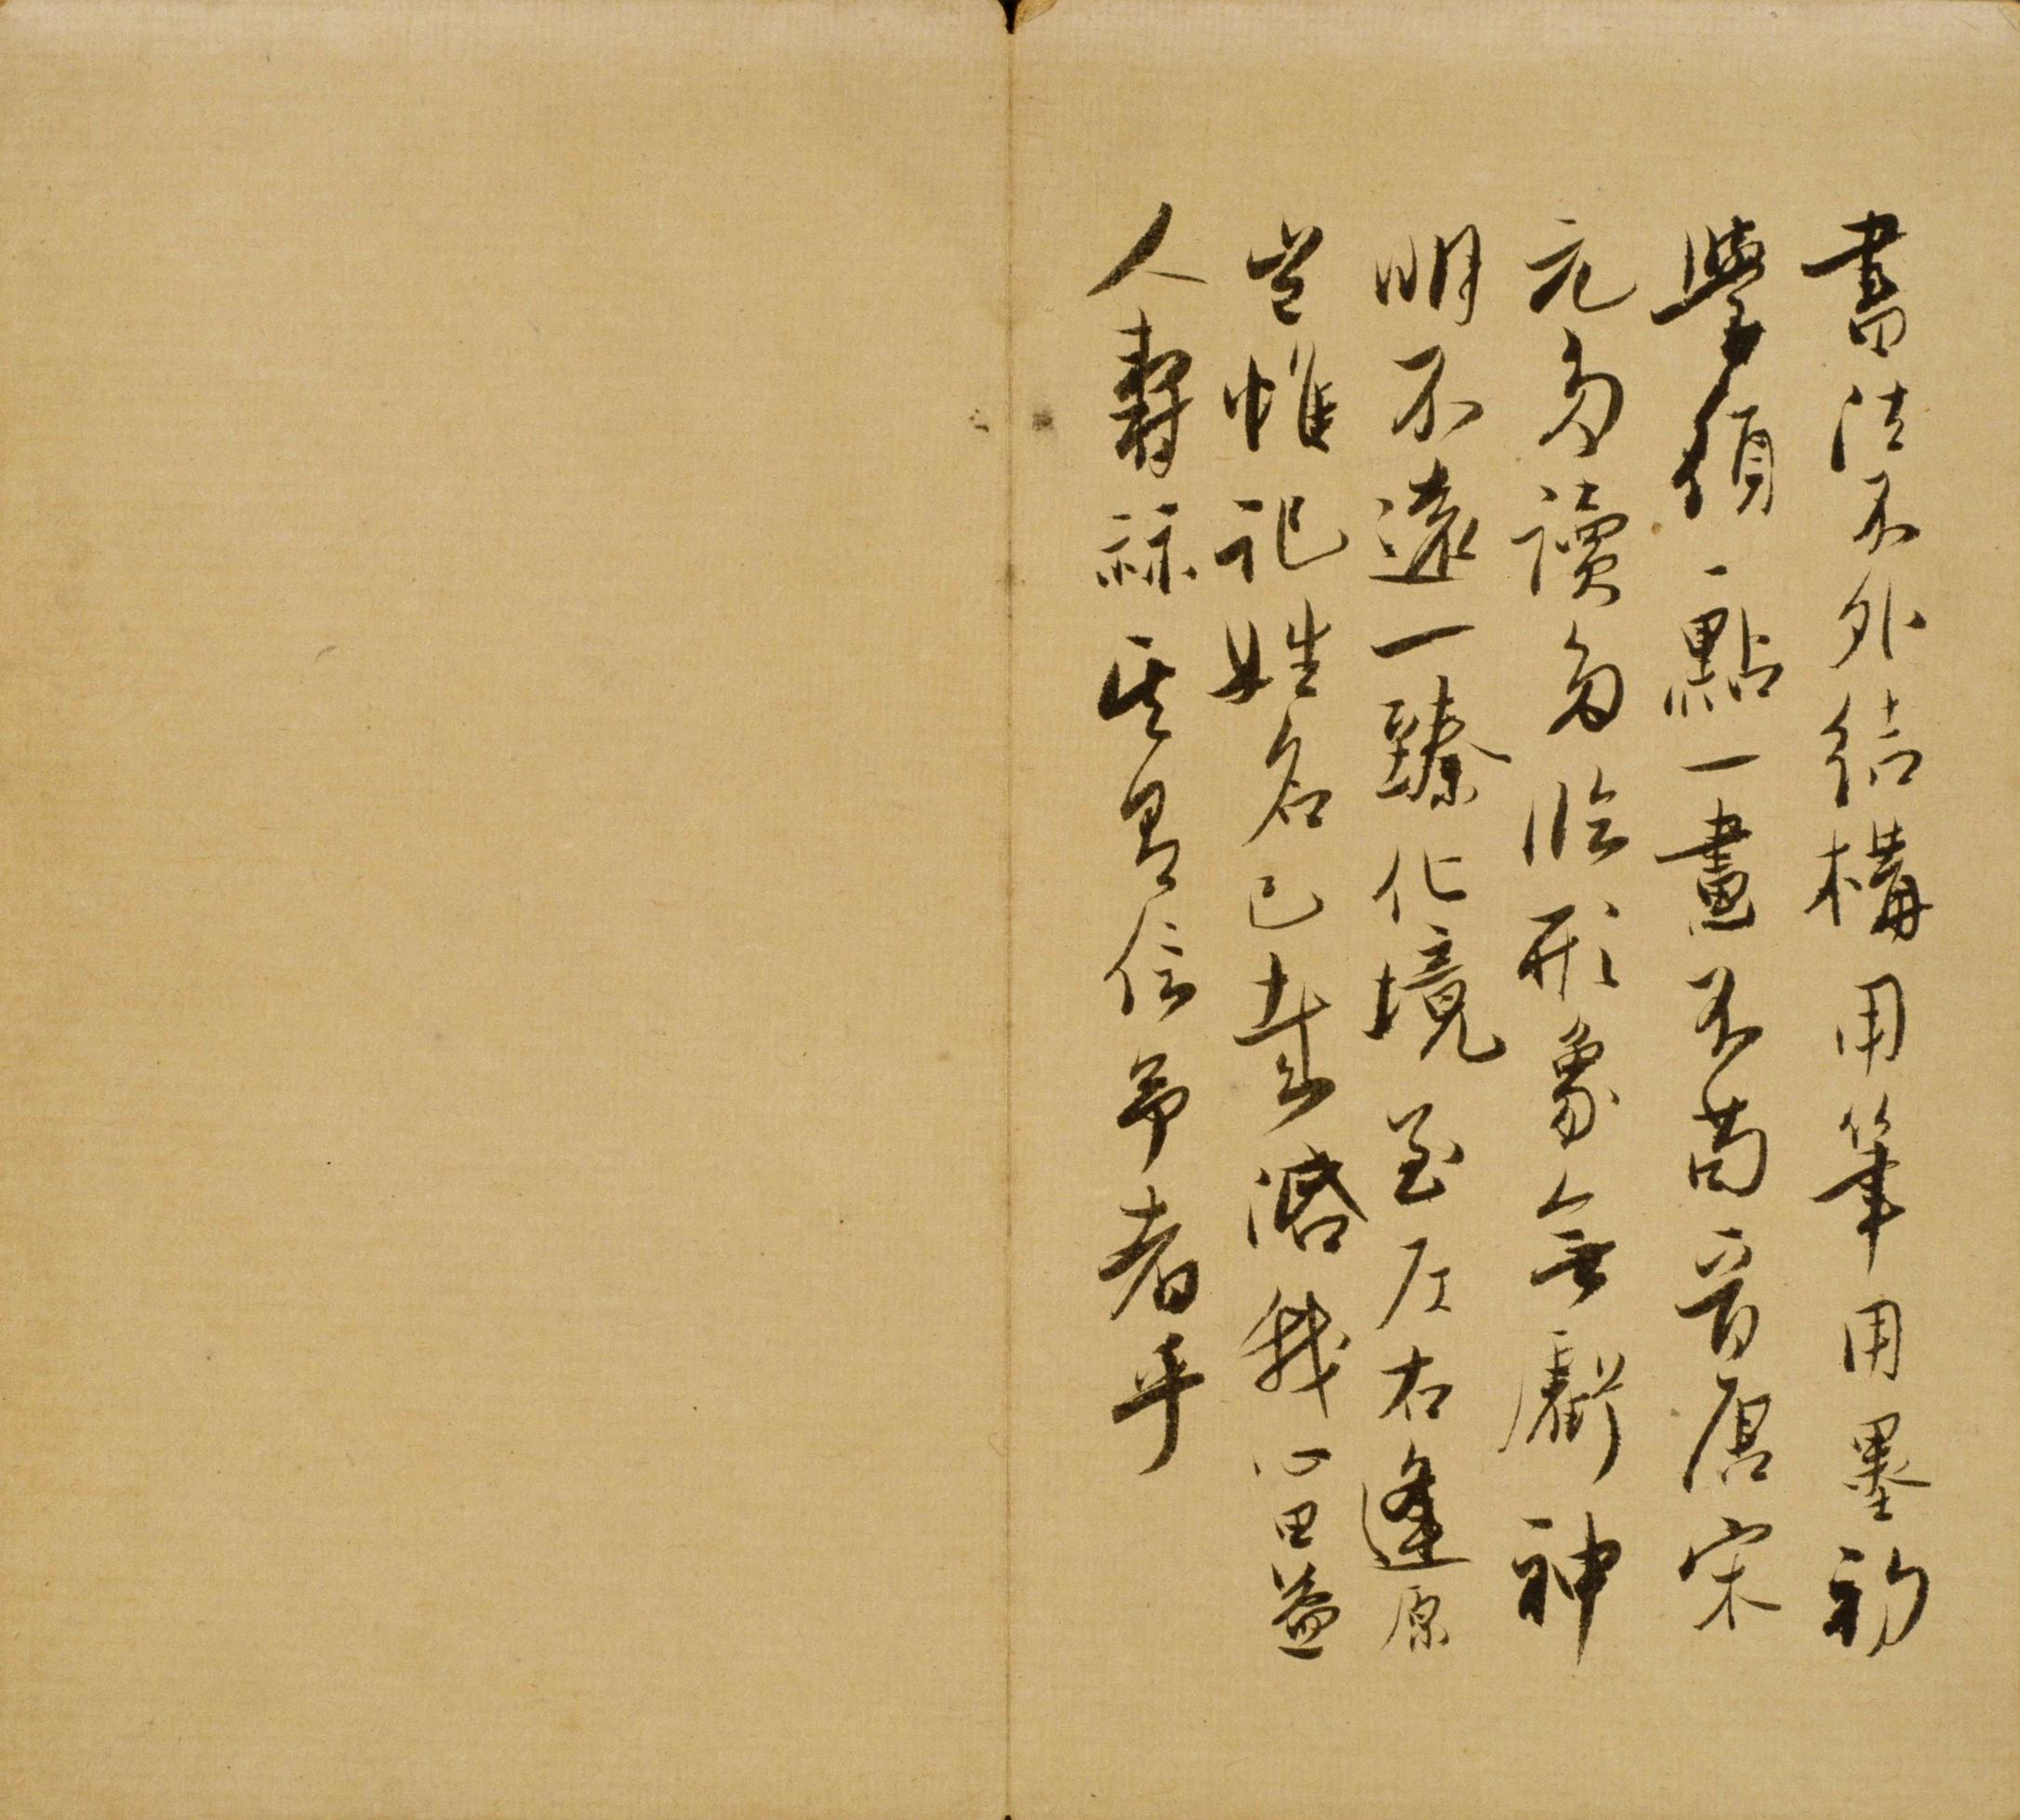 書法不外結構用筆用墨初
學須一點一畫不苟晉唐宋
元多讀多臨形象無虧神
明不遠一臻化境至左右逢原
豈惟記姓名已哉濬我心田益
人壽祿其果信予者乎